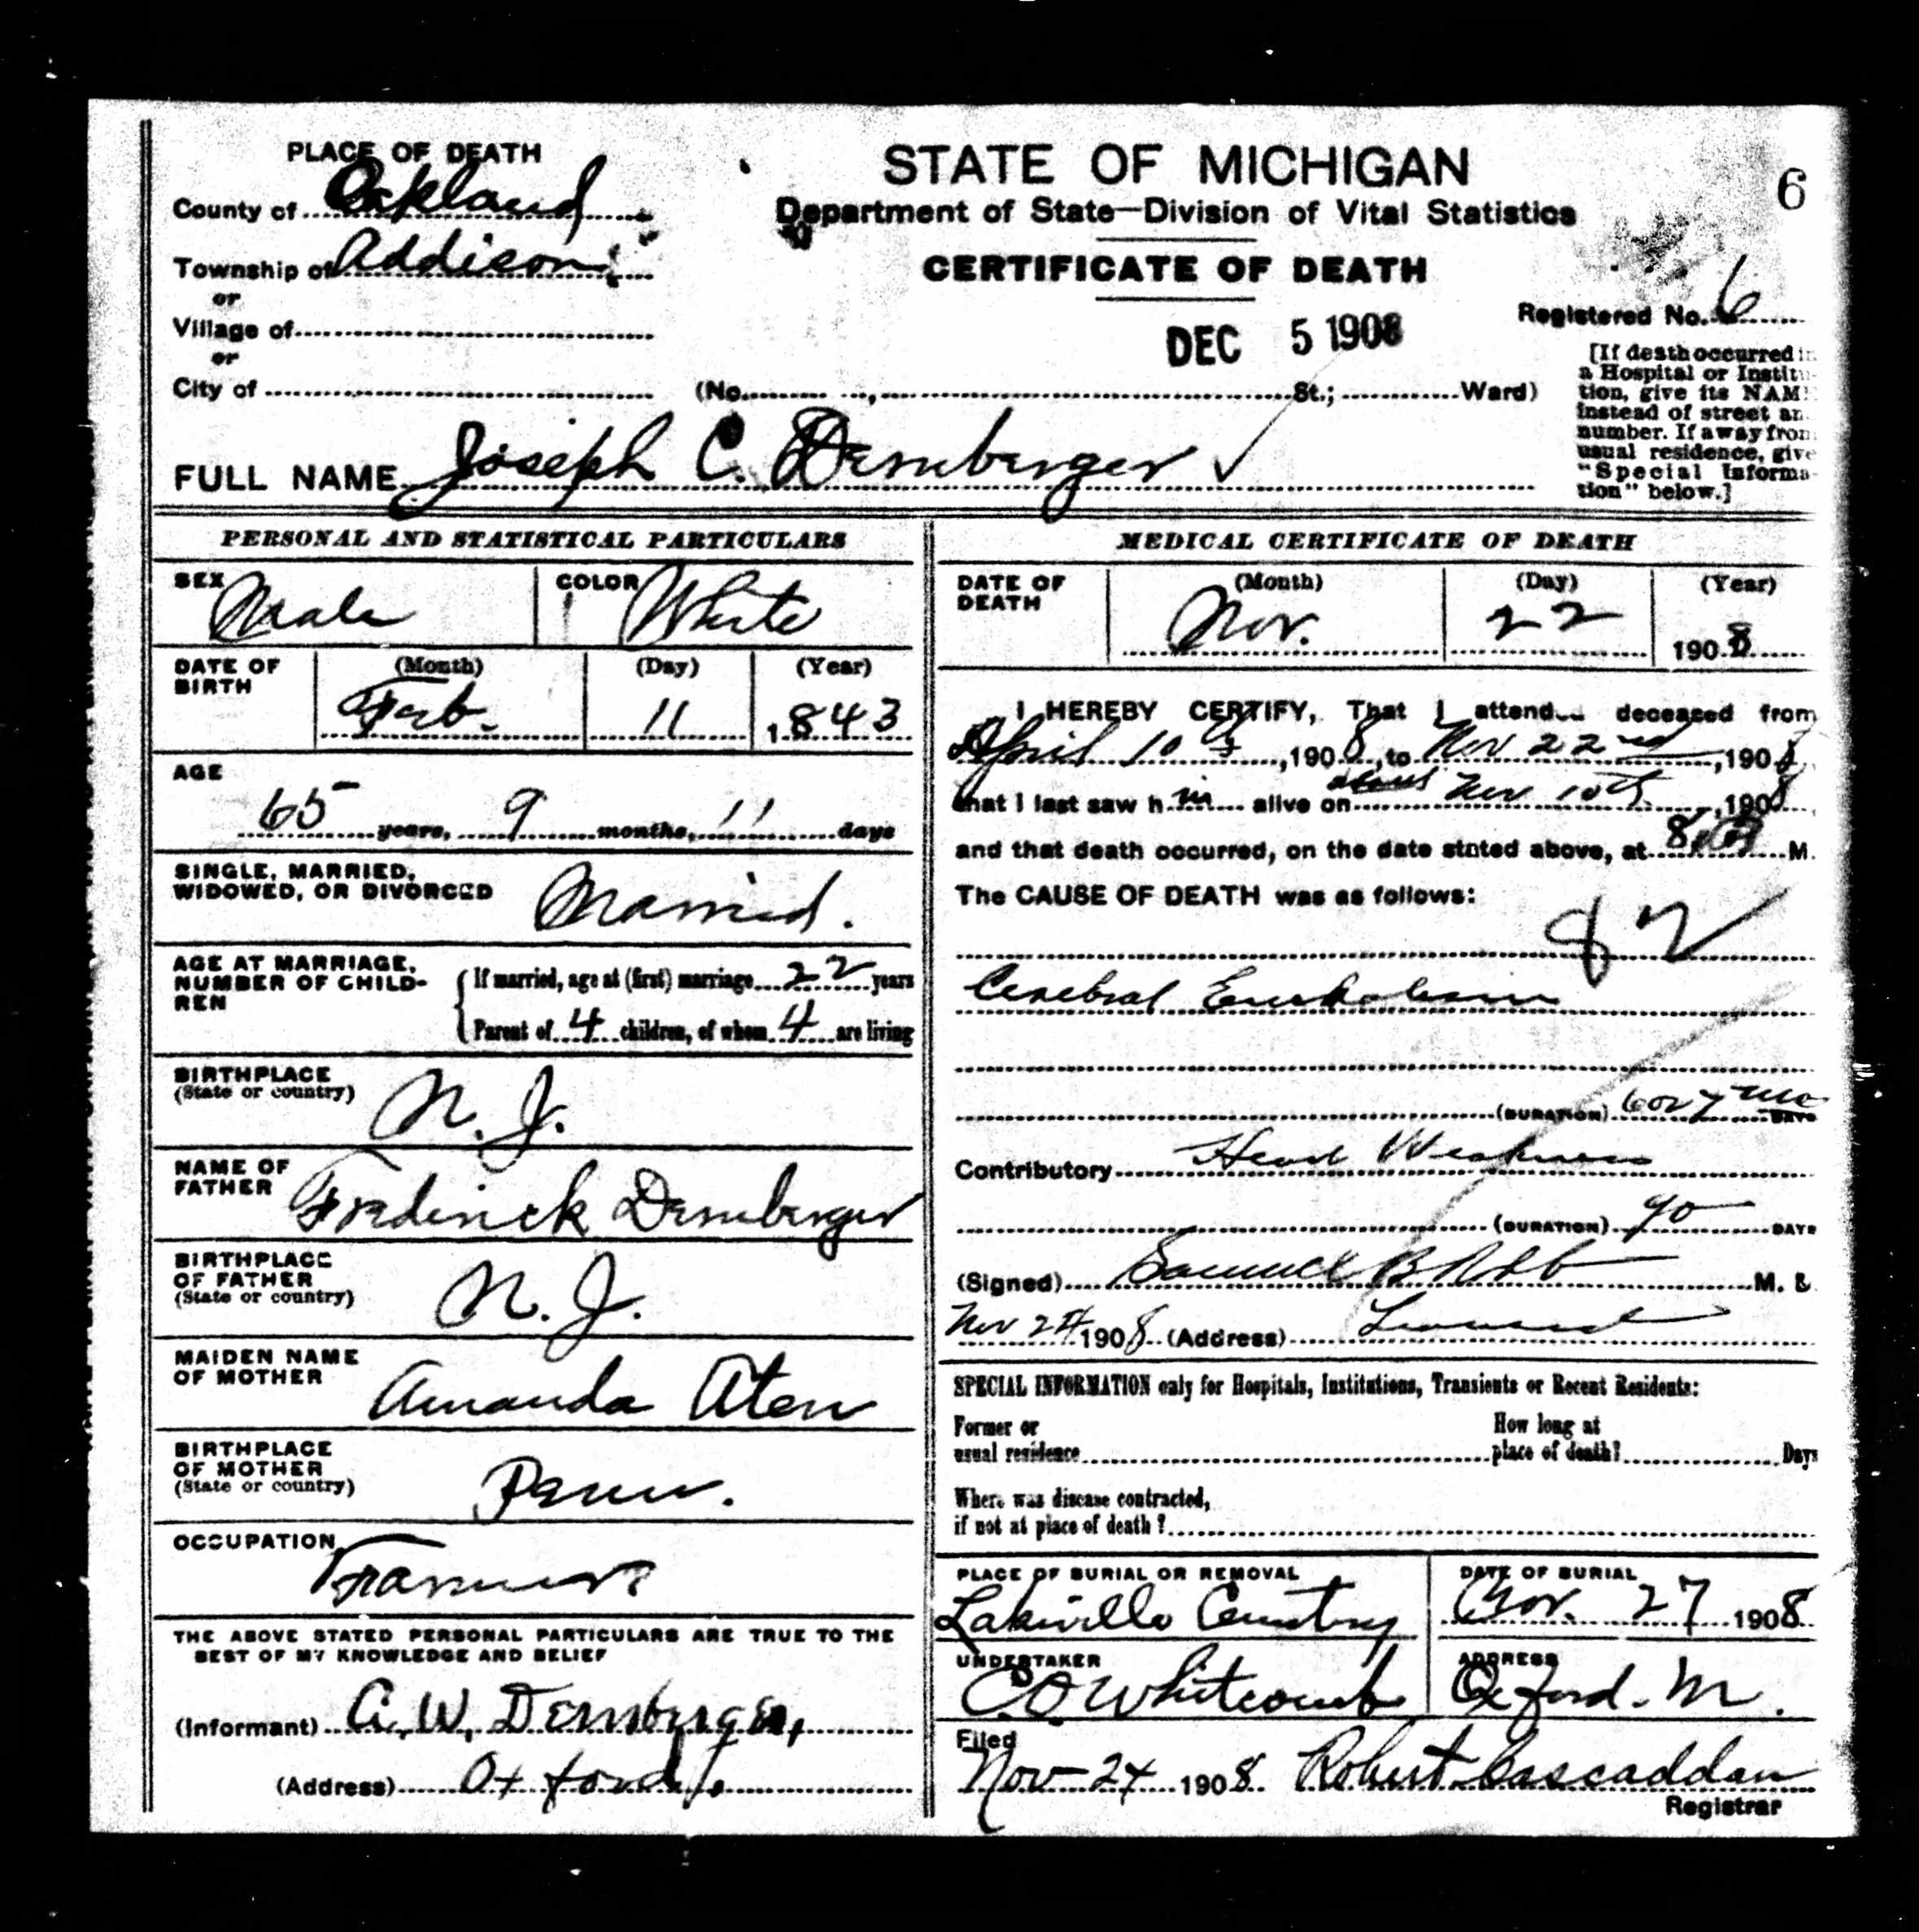 6
PLACE OF DEATH
County of Oakland
Township of Addison
or
Village of
or
City of
STATE OF MICHIGAN
Department of State—Division of Vital Statistics
CERTIFICATE OF DEATH
DEC 5 1908
Registered No. 6
(No. St.; Ward)
[If death occurred in
a Hospital or Institu-
tion, give its NAME
instead of street an
number. If away from
usual residence, give
"Special Informa-
tion" below.]
FULL NAME Joseph C. Dernberger
PERSONAL AND STATISTICAL PARTICULARS
SEX Male COLOR White
DATE OF BIRTH (Month) (Day) (Year)
Feb. 11 1843
AGE
65 years, 9 months, 11 days
SINGLE, MARRIED,
WIDOWED, OR DIVORCED Married.
AGE AT MARRIAGE,
NUMBER OF CHILD-
REN
If married, age at (first) marriage 22 years
Parent of 4 children, of whom 4 are living
BIRTHPLACE
(State or country) N. J.
NAME OF
FATHER Fredinick Dernberger
BIRTHPLACE
OF FATHER
(State or country) N. J.
MAIDEN NAME
OF MOTHER Amanda Aten
BIRTHPLACE
OF MOTHER
(State or country) Penn.
OCCUPATION
Farmer
THE ABOVE STATED PERSONAL PARTICULARS ARE TRUE TO THE
BEST OF MY KNOWLEDGE AND BELIEF
(Informant) C. W. Dernberger,
(Address) Oxford
MEDICAL CERTIFICATE OF DEATH
DATE OF DEATH (Month) (Day) (Year)
Nov. 22 1908
I HEREBY CERTIFY, That I attended deceased from
April 10th, 1908, to Nov 22nd, 1908,
that I last saw him alive on about Nov 10th, 1908,
and that death occurred, on the date stated above, at 8 M.
The CAUSE OF DEATH was as follows:
82
Cerebral Embolism
(DURATION) 6 or 7 mo DAYS
Contributory Heart Weakness
(DURATION) 90 DAYS
(Signed) Samuel B M. D.
Nov 24 1908 (Address) Leonard
SPECIAL INFORMATION only for Hospitals, Institutions, Transients or Recent Residents:
Former or
usual residence
How long at
place of death? Days
Where was disease contracted,
if not at place of death?
PLACE OF BURIAL OR REMOVAL
Lakeville Cemetery
DATE OF BURIAL
Nov. 27 1908
UNDERTAKER
C.O. Whitcomb
ADDRESS
Oxford. M.
Filed
Nov 24 1908 Robert Cascaddan
Registrar